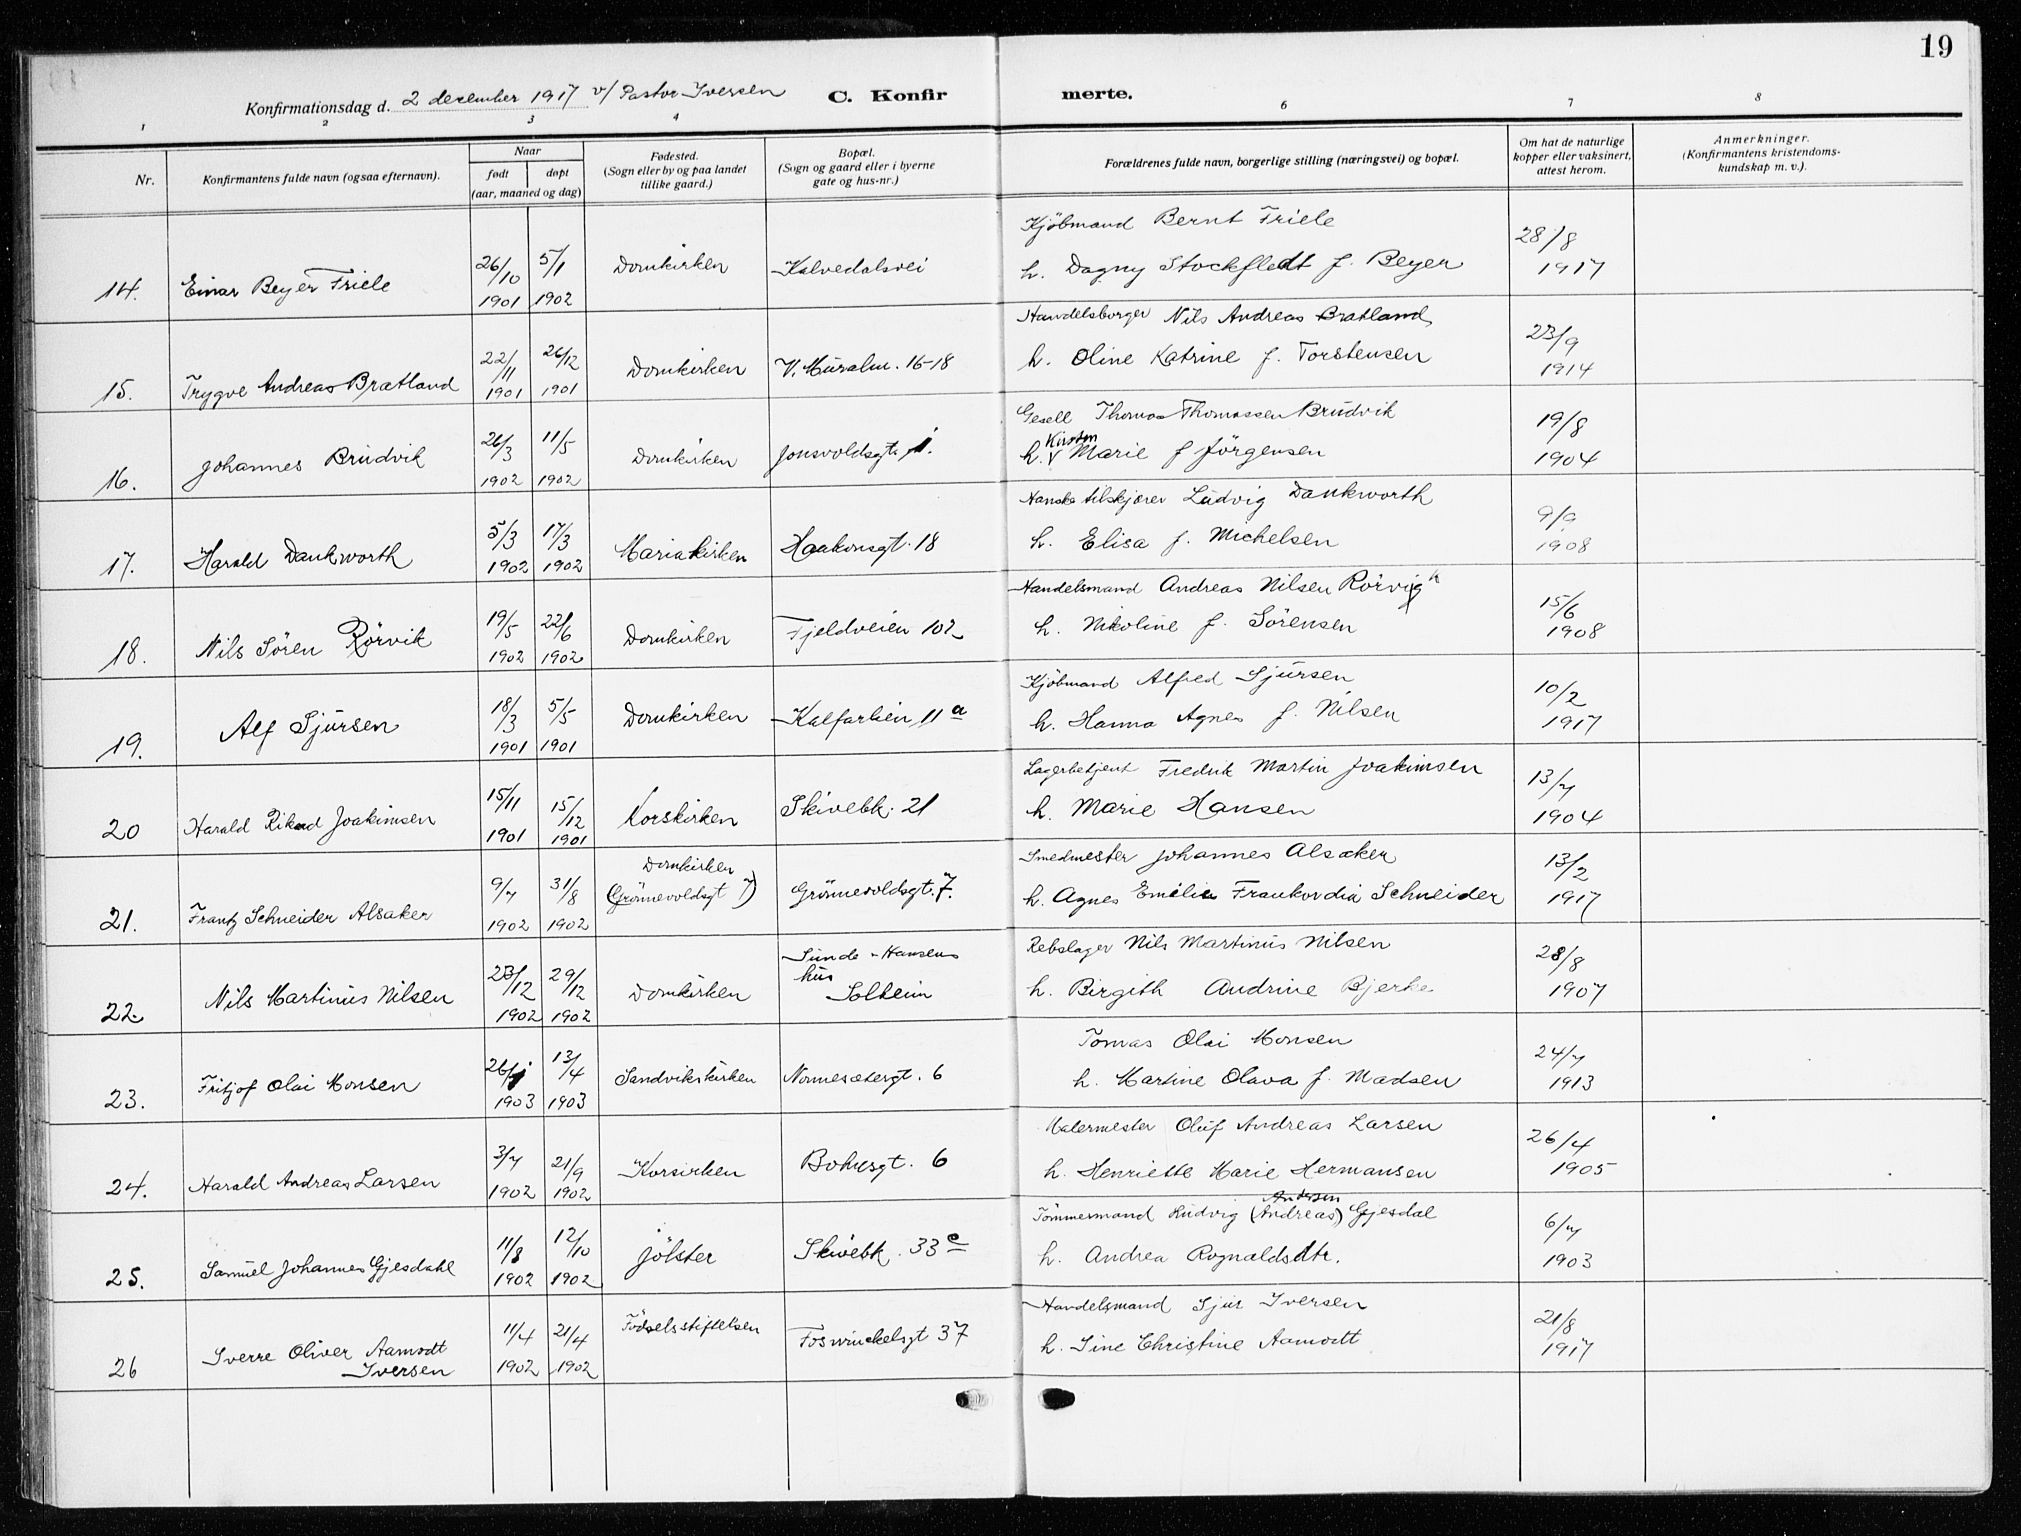 19
Konfirmationsdag d. 2 december 1917 v/ Pastor Iversen C. Konfirmerte.
1 2 3 4 6 7 8
Nr. Konfirmantens fulde navn (ogsaa efternavn). Naar født døpt (aar, maaned og dag) Fødested. (Sogn eller by og paa landet tillike gaard.) Bopæl. (Sogn og gaard eller i byerne gate og hus-nr.) Forældrenes fulde navn, borgerlige stilling (næringsvei) og bopæl. Om hat de naturlige kopper eller vaksinert, attest herom. Anmerkninger. (Konfirmantens kristendoms-kundskap m. v.).
14. Einar Beyer Friele 26/10 1901 5/1 1902 Domkirken Kalvedalsvei Kjöbmand Bernt Friele 28/8
h. Dagny Stockfledt f. Beyer 1917
15. Trygve Andreas Bratland 22/11 1901 26/12 1901 Domkirken V. Muralm. 16-18 Handelsborger Nils Andreas Bratland 23/9
h. Oline Katrine f. Torstensen 1914
16. Johannes Brudvik 26/3 1902 11/5 1902 Domkirken Jonsvoldsgt. 1. Gesell Thomas Thomassen Brudvik 19/8
h. Kirsten Marie f Jörgensen 1904
17. Harald Dankworth 5/3 1902 17/3 1902 Mariakirken Haakonsgt. 18 Hanske tilskjærer Ludvig Dankworth 9/9
h. Elisa f. Michelsen 1908
18. Nils Sören Rörvik 19/5 1902 22/6 1902 Domkirken Fjeldveien 102 Handelsmand Andreas Nilsen Rörvig k 15/6
h. Nikoline f. Sörensen 1908
19. Alf Sjursen 18/3 1901 5/5 1901 Domkirken Kalfarlien 11 a Kjöbmand Alfred Sjursen 10/2
h. Hanna Agnes f. Nilsen 1917
20 Harald Rikard Joakimsen 15/11 1901 15/12 1901 Korskirken Skivebk. 21 Lagerbetjent Fredrik Martin Joakimsen 13/7
h. Marie Hansen 1904
21. Frantz Schneider Alsaker 9/7 1902 31/8 1902 Domkirken (Grönnevoldsgt 7) Grönnevoldsgt. 7. Smedmester Johannes Alsaker 13/2
h. Agnes Emélie Frankordia Schneider 1917
22. Nils Martinus Nilsen 23/12 1902 29/12 1902 Domkirken Sunde - Hansens hus Solheim Rebslager Nils Martinus Nilsen 28/8
h. Birgith Andrine Bjerke 1907
23. Fritjof Olai Monsen 26/1 1903 13/4 1903 Sandvikskirken Nonnesætergt. 6 Tomas Olai Monsen 24/7
h. Martine Olava f. Madsen 1913
24. Harald Andreas Larsen 3/7 1902 21/9 1902 Korsirken Bohusgt. 6 Malermester Oluf Andreas Larsen 26/4
h. Henriette Marie Hermansen 1905
25. Samuel Johannes Gjesdahl 11/8 1902 12/10 1902 Jölster Skivebk. 33 c Tömmermand Ludvig (Andreas) Andersen Gjesdal 6/7
h. Andrea Rognaldsdtr. 1903
26 Sverre Oliver Aamodt Iversen 11/4 1902 21/4 1902 Födselsstiftelsen Foswinckelsgt 37 Handelsmand Sjur Iversen 21/8
h. Sine Christine Aamodt 1917